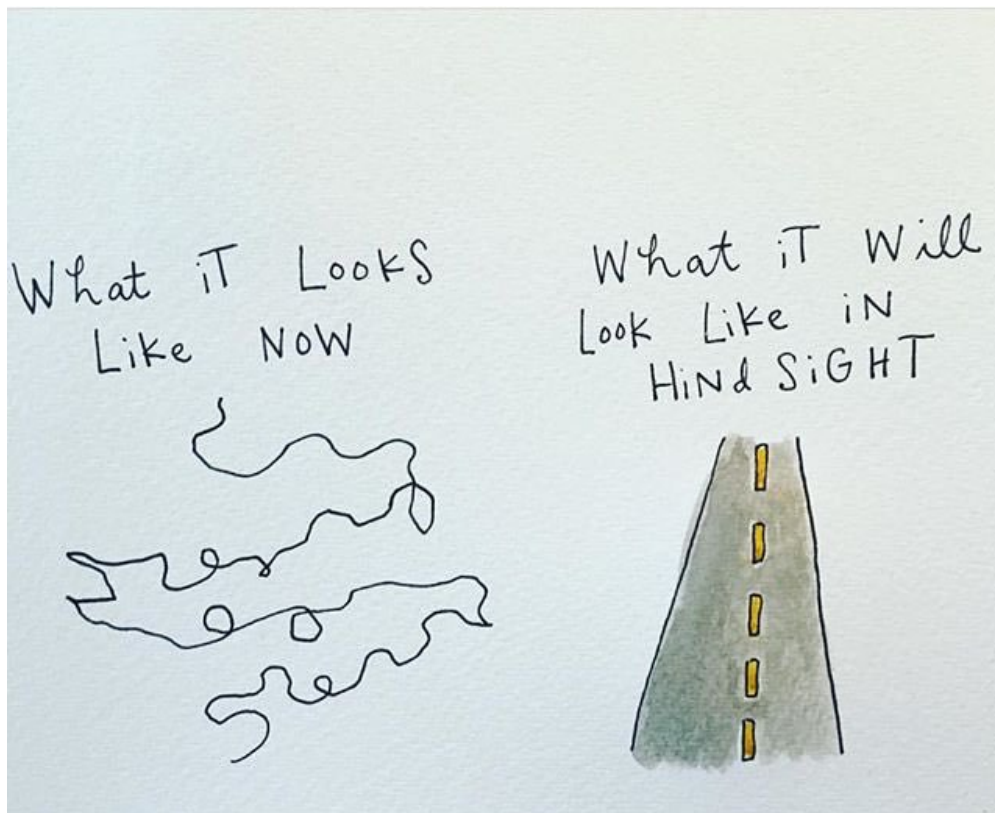 What iT LooKS
Like NOW
What iT Will
Look Like iN
HiNd SiGHT